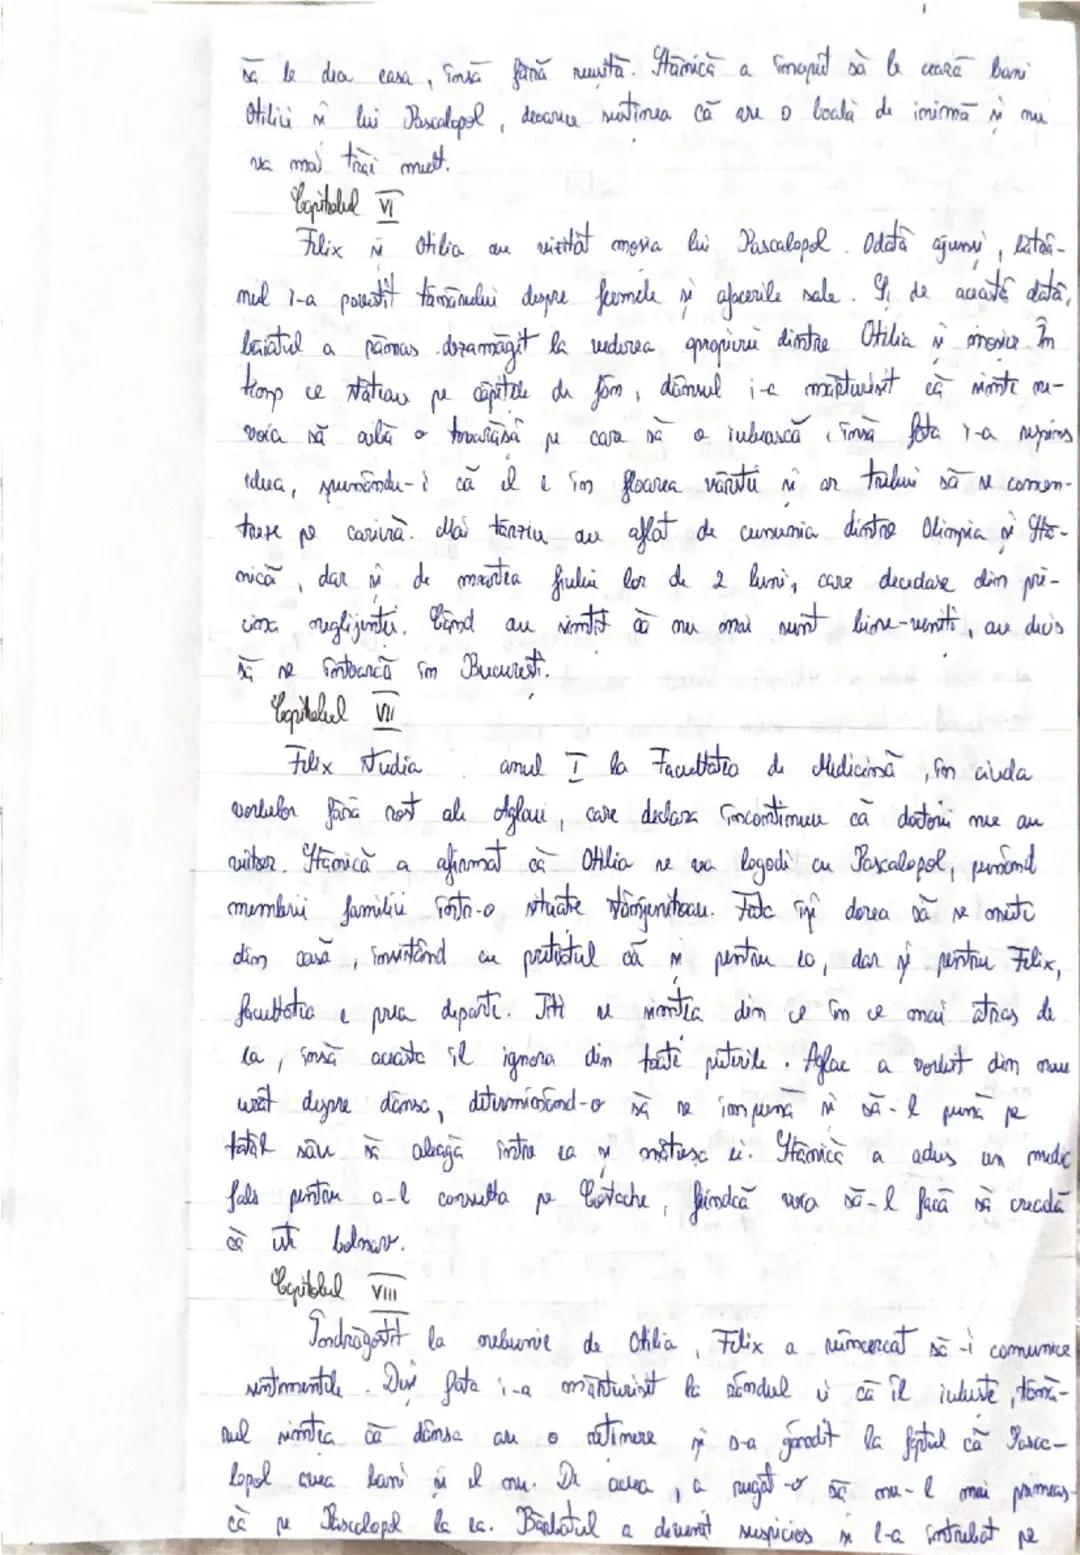 să le dea casa, însă fără reușită. Stănică a început să le ceară bani
Otiliei și lui Pascalopol, deoarece susținea că are o boală de inimă și nu
va mai trăi mult.
Capitolul VI
Felix și Otilia au vizitat moșia lui Pascalopol. Odată ajunși, bătrâ-
nul i-a povestit tânărului despre femeile și afacerile sale. Și de această dată,
băiatul a rămas dezamăgit la vederea apropierii dintre Otilia și moșier. În
timp ce stăteau pe căpițele de fân, dânsul i-a mărturisit că simte ne-
voia să aibă o tovarășă pe care să o iubească, însă fata i-a respins
ideea, spunându-i că el e în floarea vârstei și ar trebui să se concen-
treze pe carieră. Mai târziu au aflat de cununia dintre Olimpia și Stă-
nică, dar și de moartea fiului lor de 2 luni, care decedase din pri-
cina neglijenței. Când au simțit că nu mai sunt bine-veniți, au decis
să se întoarcă în București.
Capitolul VII
Felix studia anul I la Facultatea de Medicină, în ciuda
vorbelor fără rost ale Aglaei, care declara încontinuu că doctorii nu au
viitor. Stănică a afirmat că Otilia se va logodi cu Pascalopol, punând
membrii familiei într-o situație stânjenitoare. Fata își dorea să se mute
din casă, insistând cu pretextul că și pentru ea, dar și pentru Felix,
facultatea e prea departe. Titi se simțea din ce în ce mai atras de
ea, însă aceasta îl ignora din toate puterile. Aglae a vorbit din nou
urât despre dânsa, determinând-o să se impună și să-l pună pe
tatăl său să aleagă între ea și mătușa ei. Stănică a adus un medic
fals pentru a-l consulta pe Costache, fiindcă voia să-l facă să creadă
că este bolnav.
Capitolul VIII
Îndrăgostit la nebunie de Otilia, Felix a încercat să-i comunice
sentimentele. Deși fata i-a mărturisit la rândul ei că îl iubește, tână-
rul simțea că dânsa are o reținere și s-a gândit la faptul că Pasca-
lopol avea bani și el nu. De aceea, a rugat-o să nu-l mai primeas-
că pe Pascalopol la ea. Bărbatul a devenit suspicios și l-a întrebat pe